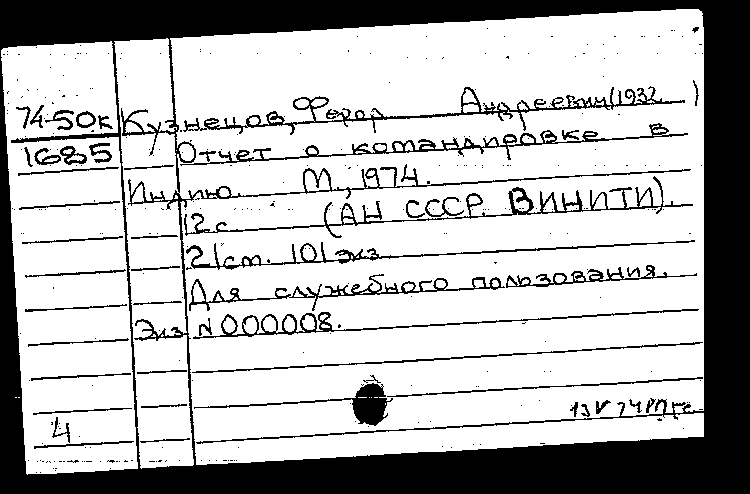 74-50к Кузнецов, Федор Андреевич (1932 )
1685 Отчет о командировке в
Индию. М., 1974.
12 с (АН СССР. ВИНИТИ).
21 см. 101 экз
Для служебного пользования.
Экз N 000008.
4 13 V 74